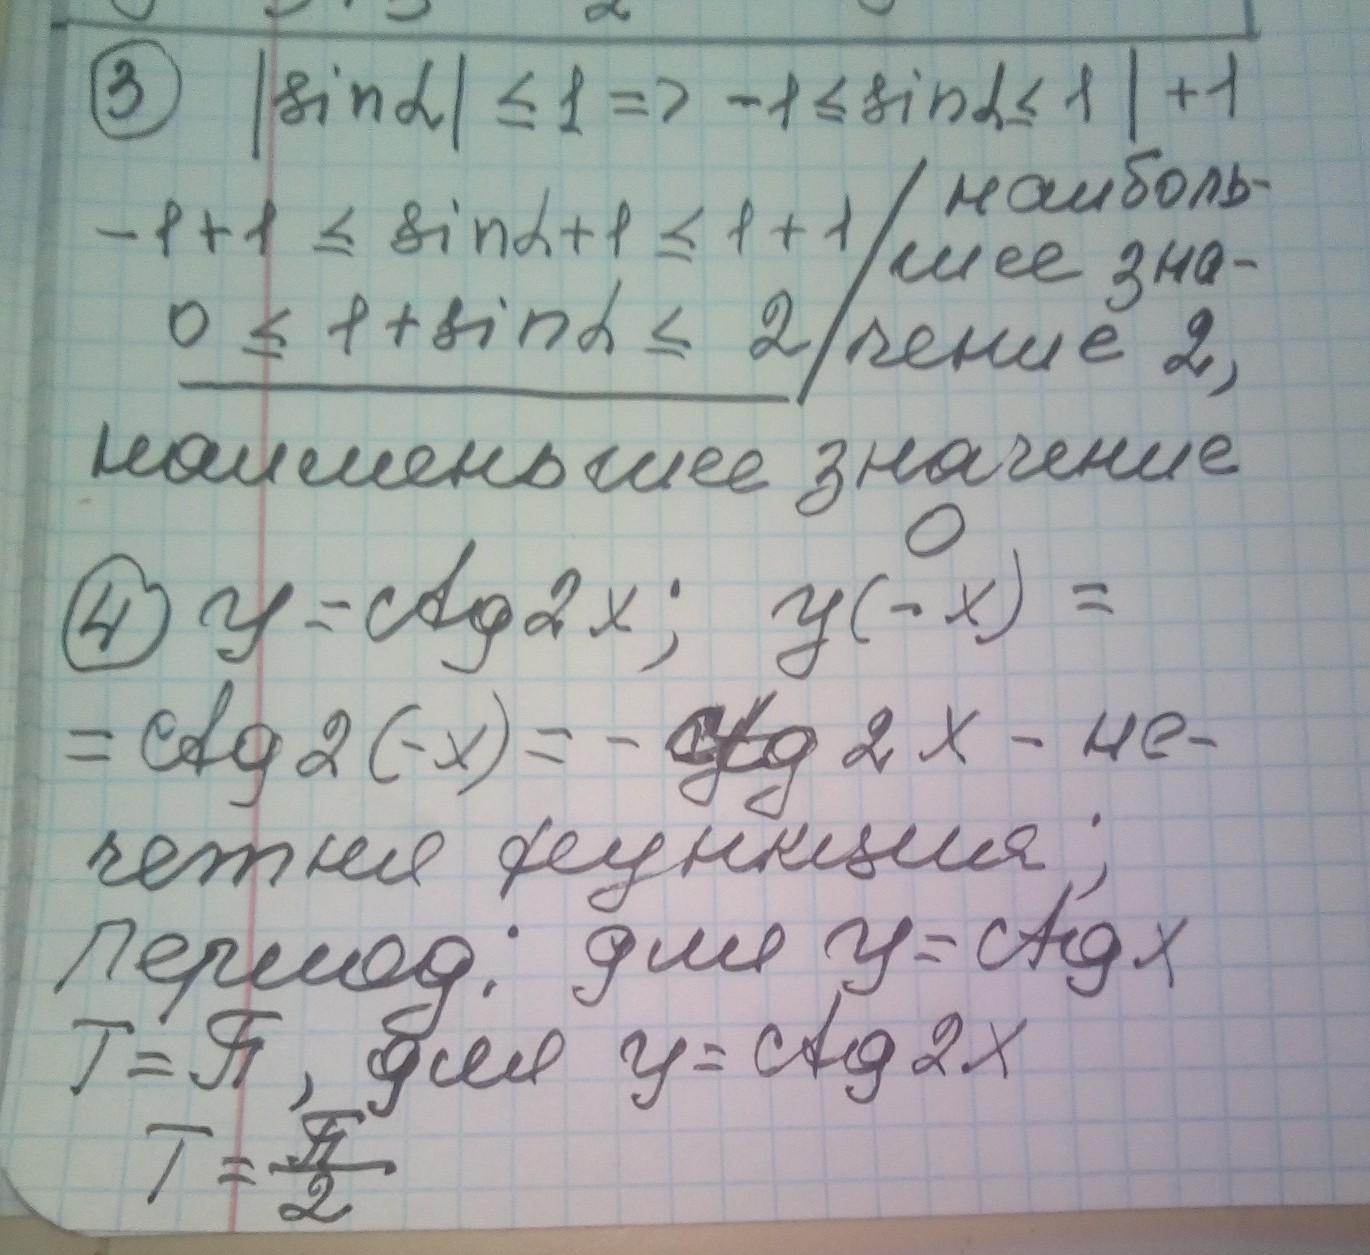 ③ |sinα| ≤ 1 => -1 ≤ sinα ≤ 1 | +1
-1+1 ≤ sinα+1 ≤ 1+1 / наиболь-
шее зна-
0 ≤ 1+sinα ≤ 2 / чение 2,
наименьшее значение
0
④ y = ctg 2x; y(-x) =
= ctg 2(-x) = - ctg 2x - не-
четная функция;
Период: для y = ctg x
T = π, для y = ctg 2x
T = π/2